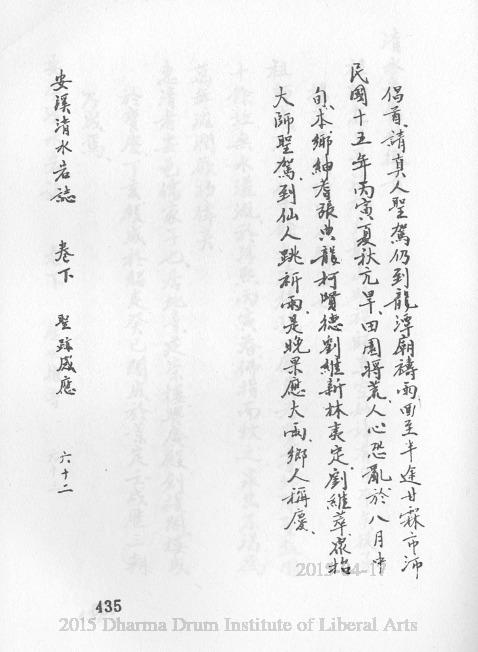 倡首、請真人聖駕仍到龍潭廟禱雨、回至半途甘霖市沛
民國十五年丙寅夏秋亢旱、田園將荒、人心恐亂、於八月中
旬、本鄉紳耆張典龍柯賢德劉維新林夷定、劉維萃、眾抬
大師聖駕、到仙人跳祈雨、是晚果應大雨、鄉人稱慶、
安溪清水岩誌 卷下 聖跡感應 六十二
435
2015-04-17
2015 Dharma Drum Institute of Liberal Arts